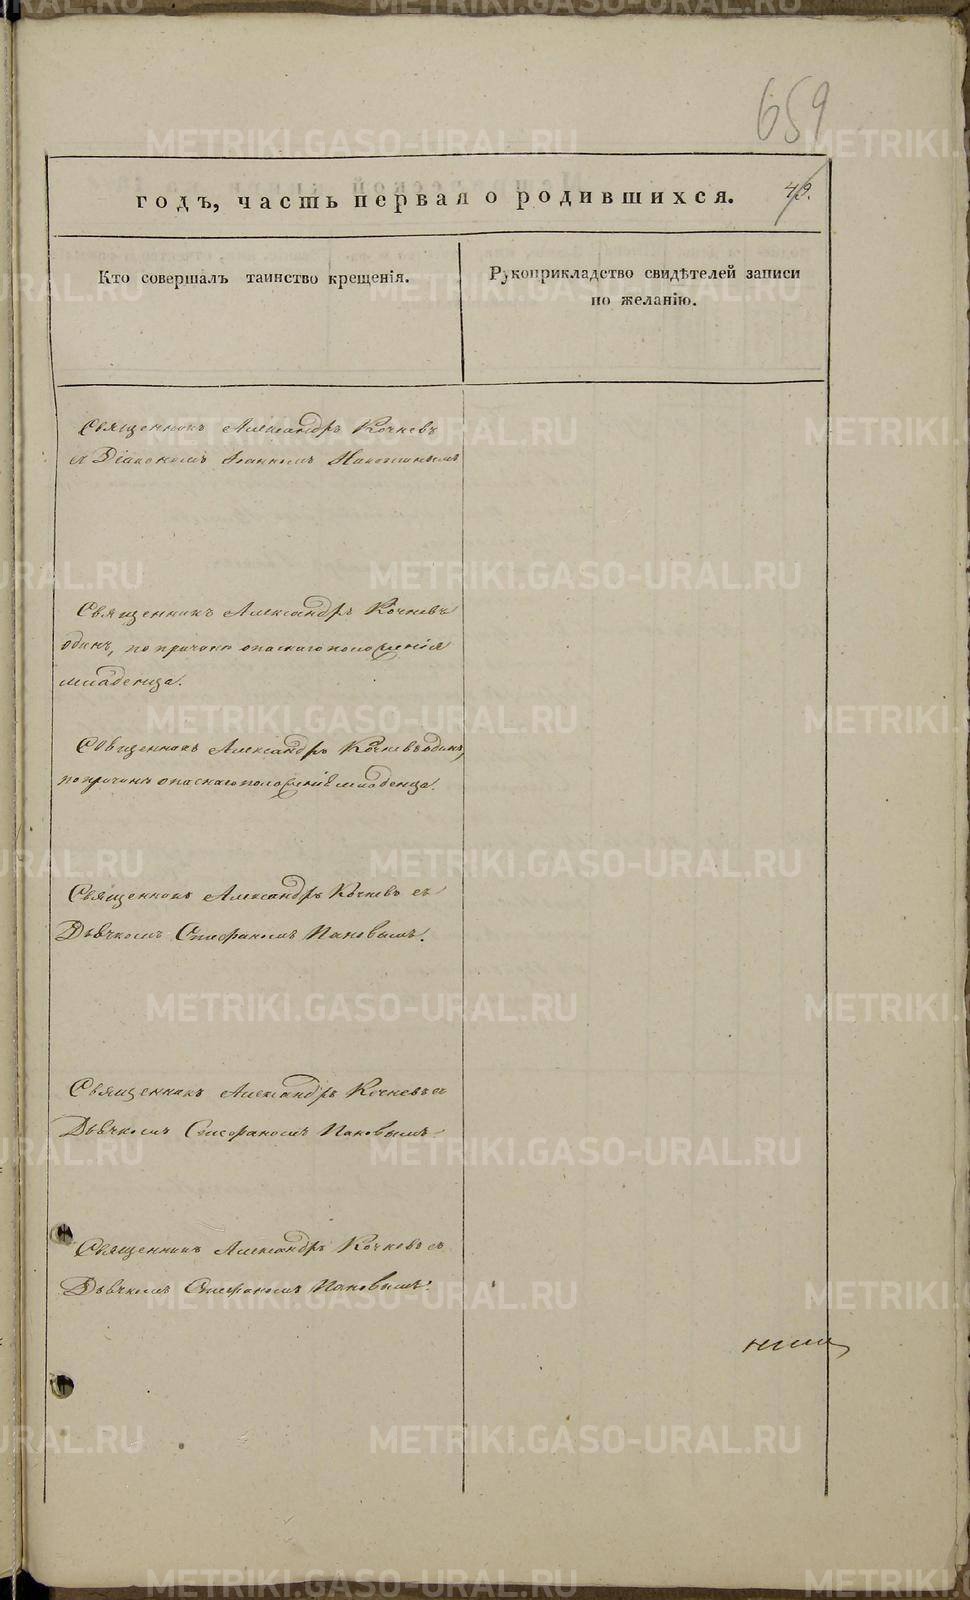 659
годъ, часть первая о родившихся.
49.
Кто совершалъ таинство крещенія.
Рукоприкладство свидѣтелей записи
по желанію.
Священникъ Александръ Кочневъ
съ Діакономъ Іоанномъ
Священникъ Александръ Кочневъ
одинъ, по причинѣ опаснаго положенія
младенца.
Священникъ Александръ Кочневъ одинъ,
по причинѣ опаснаго положенія младенца.
Священникъ Александръ Кочневъ съ
Дьячкомъ Стефаномъ Пановымъ.
Священникъ Александръ Кочневъ съ
Дьячкомъ Стефаномъ Пановымъ
Священникъ Александръ Кочневъ съ
Дьячкомъ Стефаномъ Пановымъ.
METRIKI.GASO-URAL.RU